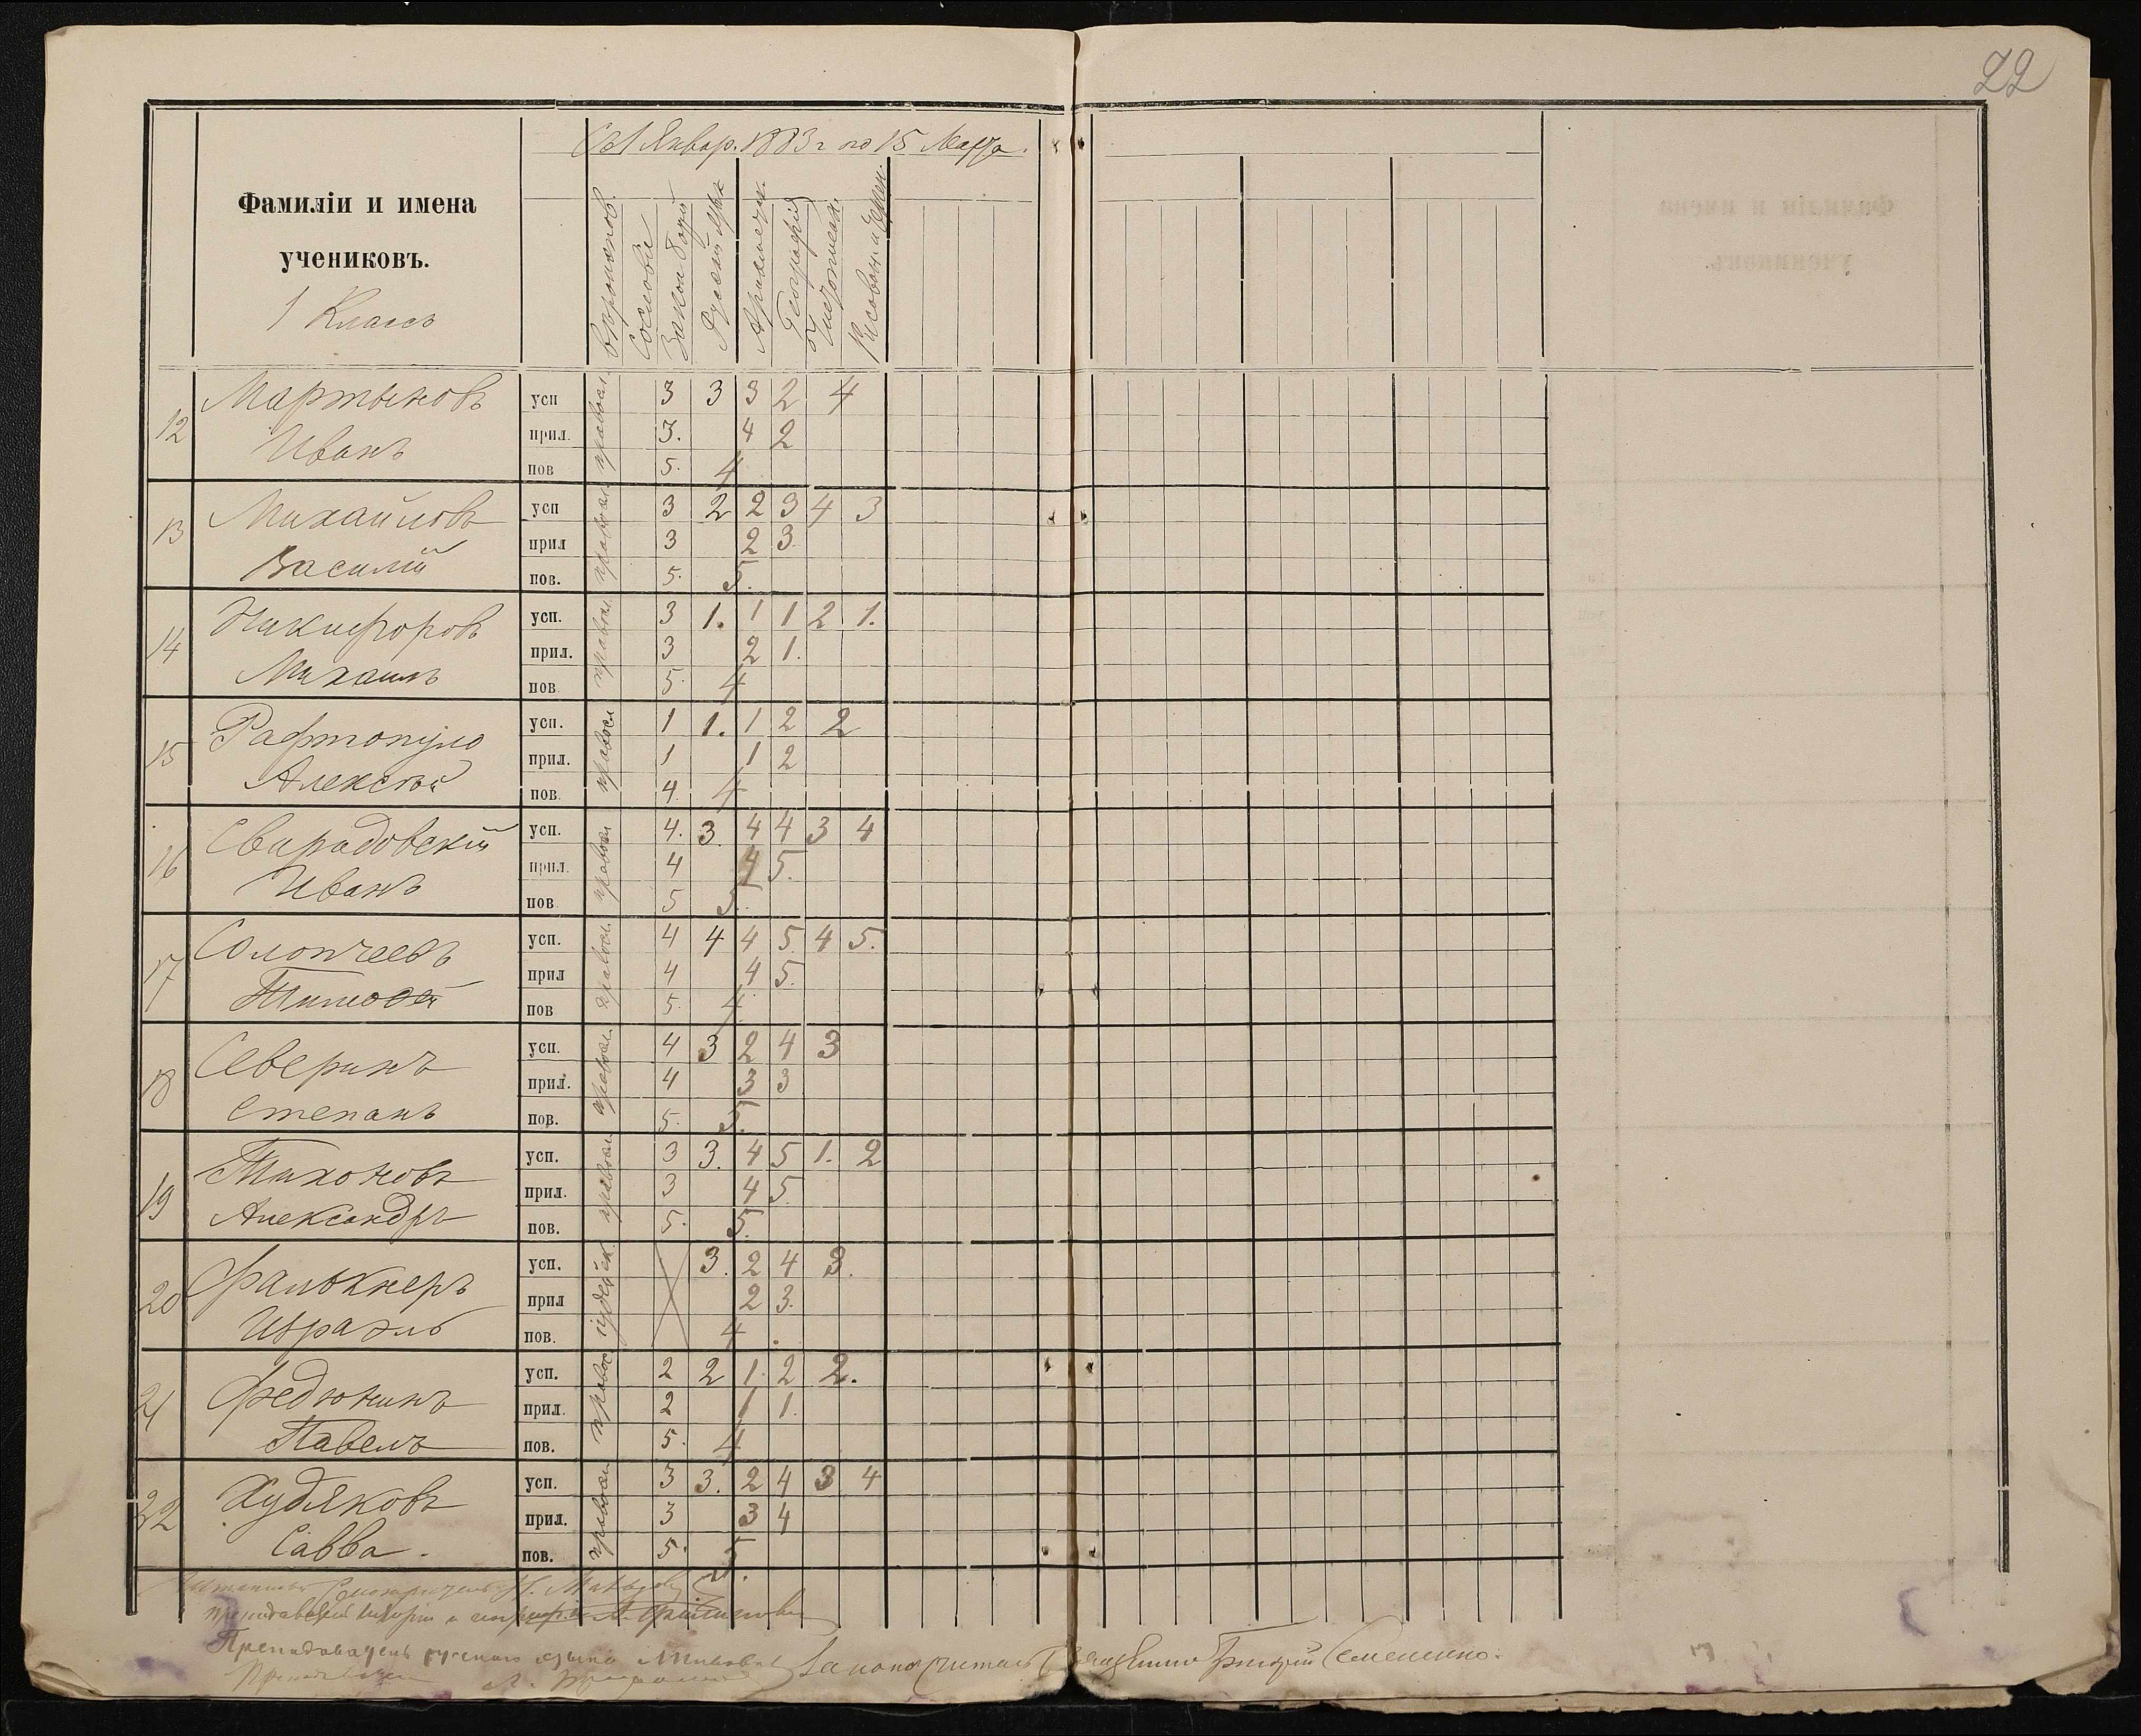 22
Съ 1 Январ. 1883 г по 15 Марта.
Фамиліи и имена
учениковъ.
1 Классъ
Вѣроисповѣд.
Сословіе
Законъ Божій
Русскій яз.
Ариѳметик.
Географія
Чистописан.
Рисован. и Черч.
12 Мартыновъ Иванъ православ.
усп 3 3 3 2 4
прил. 3. 4 2
пов 5. 4
13 Михайловъ Василій православ.
усп 3 2 2 3 4 3
прил 3 2 3
пов. 5. 5.
14 Никифоровъ Михаилъ правосл.
усп. 3 1. 1 1 2 1.
прил. 3 2 1.
пов. 5. 4
15 Рафтопуло Алексѣй правосл
усп. 1 1. 1 2 2
прил. 1 1 2
пов. 4 4
16 Свирадовскій Иванъ правосл
усп. 4. 3. 4 4 3 4
прил. 4 4 5.
пов. 5 5.
17 Солопчеевъ Тимоѳей правосл.
усп. 4 4 4 5 4 5.
прил 4 4 5.
пов 5. 4
18 Северинъ Степанъ правосл
усп. 4 3 2 4 3
прил. 4 3 3
пов. 5. 5.
19 Тихоновъ Александръ правосл
усп. 3 3. 4 5 1. 2
прил. 3 4 5
пов. 5. 5.
20 Фалькнеръ Израэль іудейск.
усп. 3. 2 4 3.
прил 2 3.
пов. 4
21 Федюнинъ Павелъ правос
усп. 2 2 1. 2 2.
прил. 2 1 1.
пов. 5. 4
22 Худяковъ Савва. правосл
усп. 3 3. 2 4 3 4
прил. 3 3 4
пов. 5. 5.
Преподаватель русскаго языка
Законоучитель Священникъ Григорій Семененко.